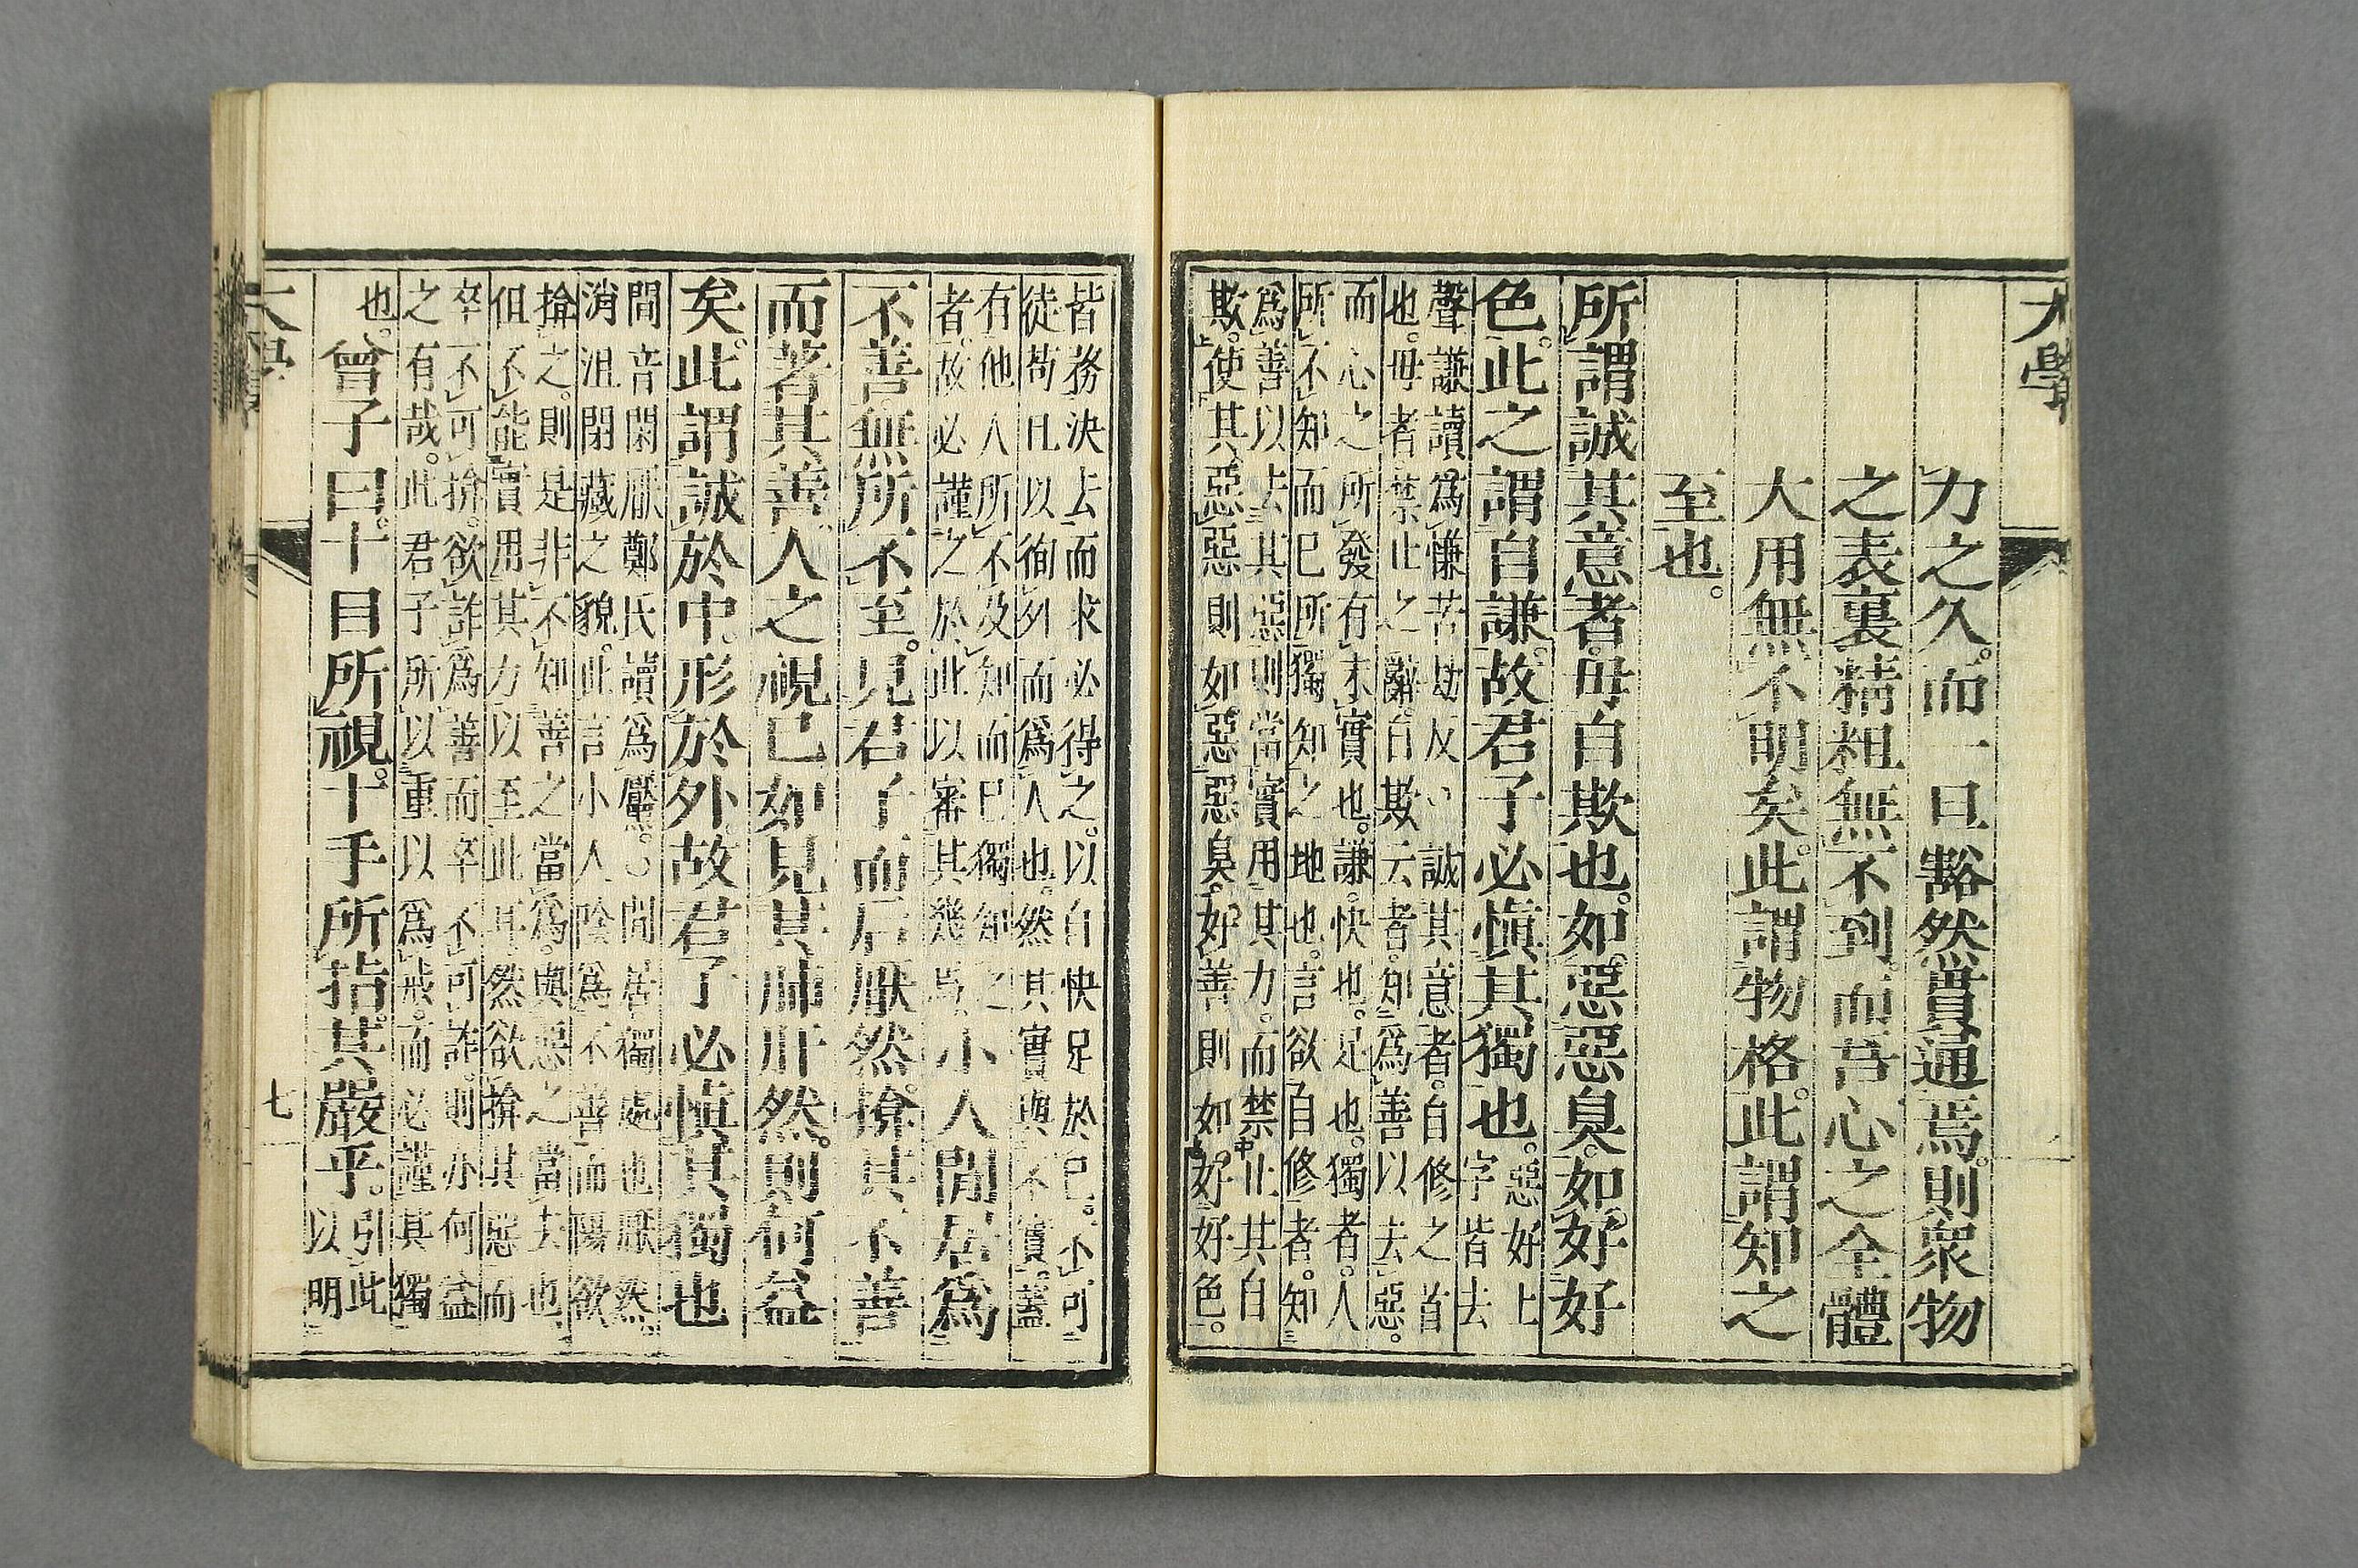 大學
力之久。而一旦豁然貫通焉。則衆物
之表裏精粗無不到。而吾心之全體
大用無不明矣。此謂物格。此謂知之
至也。
所謂誠其意者。毋自欺也。如惡惡臭。如好好
色。此之謂自謙。故君子必慎其獨也。惡好上
字皆去
聲謙讀爲慊苦劫反〇誠其意者。自修之首
也。毋者禁止之辭。自欺云者。知爲善以去惡。
而心之所發有未實也。謙。快也。足也。獨者。人
所不知而已所獨知之地也。言欲自修者。知
爲善以去其惡則當實用其力。而禁止其自
欺。使其惡惡則如惡惡臭。好善則如好好色。
皆務決去而求必得之。以自快足於已。不可
徒苟且以徇外而爲人也。然其實與不實。蓋
有他人所不及知而已獨知之
者。故必謹之於此以審其幾焉。小人閒居爲
不善。無所不至。見君子而后厭然。揜其不善
而著其善。人之視已如見其肺肝然。則何益
矣。此謂誠於中。形於外。故君子必慎其獨也
間音閑厭鄭氏讀爲黶。〇間居獨處也厭然。
消沮閉藏之貌。此言小人陰爲不善而陽欲
揜之。則是非不知善之當爲。與惡之當去也
但不能實用其力以至此耳然欲揜其惡而
卒不可揜。欲詐爲善而卒不可詐。則亦何益
之有哉。此君子所以重以爲戒。而必謹其獨
也。
曾子曰。十目所視。十手所指。其嚴乎。引此
以明
大學
七